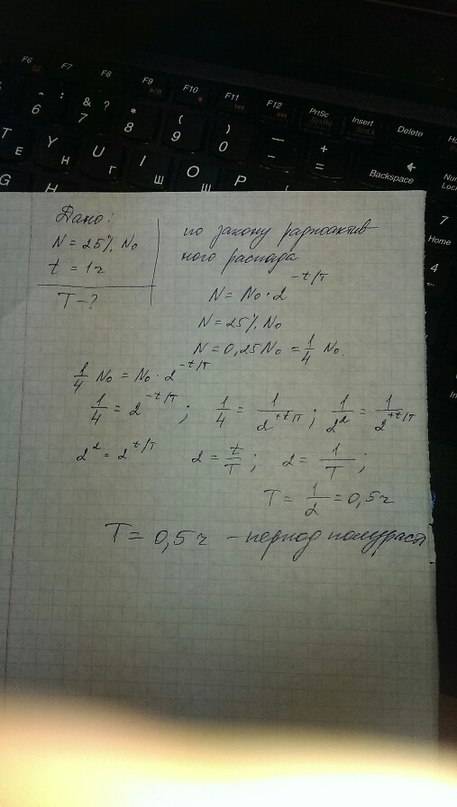 F6 F7 F8 F9 F10 F11 F12 PrtSc Insert Delete
6 & ? 7 * 8 ( 9 ) 0 — — + = Backspace
Т Е Y Н U Г I Ш O Щ P
G H
7 Home
4
Дано:
N = 25% N₀
t = 1ч
T - ?
по закону радиоактив
ного распада
N = N₀ · 2^(-t/T)
N = 25% N₀
N = 0,25 N₀ = 1/4 N₀
1/4 N₀ = N₀ · 2^(-t/T)
1/4 = 2^(-t/T) ; 1/4 = 1/2^(+t/T) ; 1/2² = 1/2^(+t/T)
2² = 2^(t/T) 2 = t/T ; 2 = 1/T ;
T = 1/2 = 0,5 ч
T = 0,5 ч - период полураспа